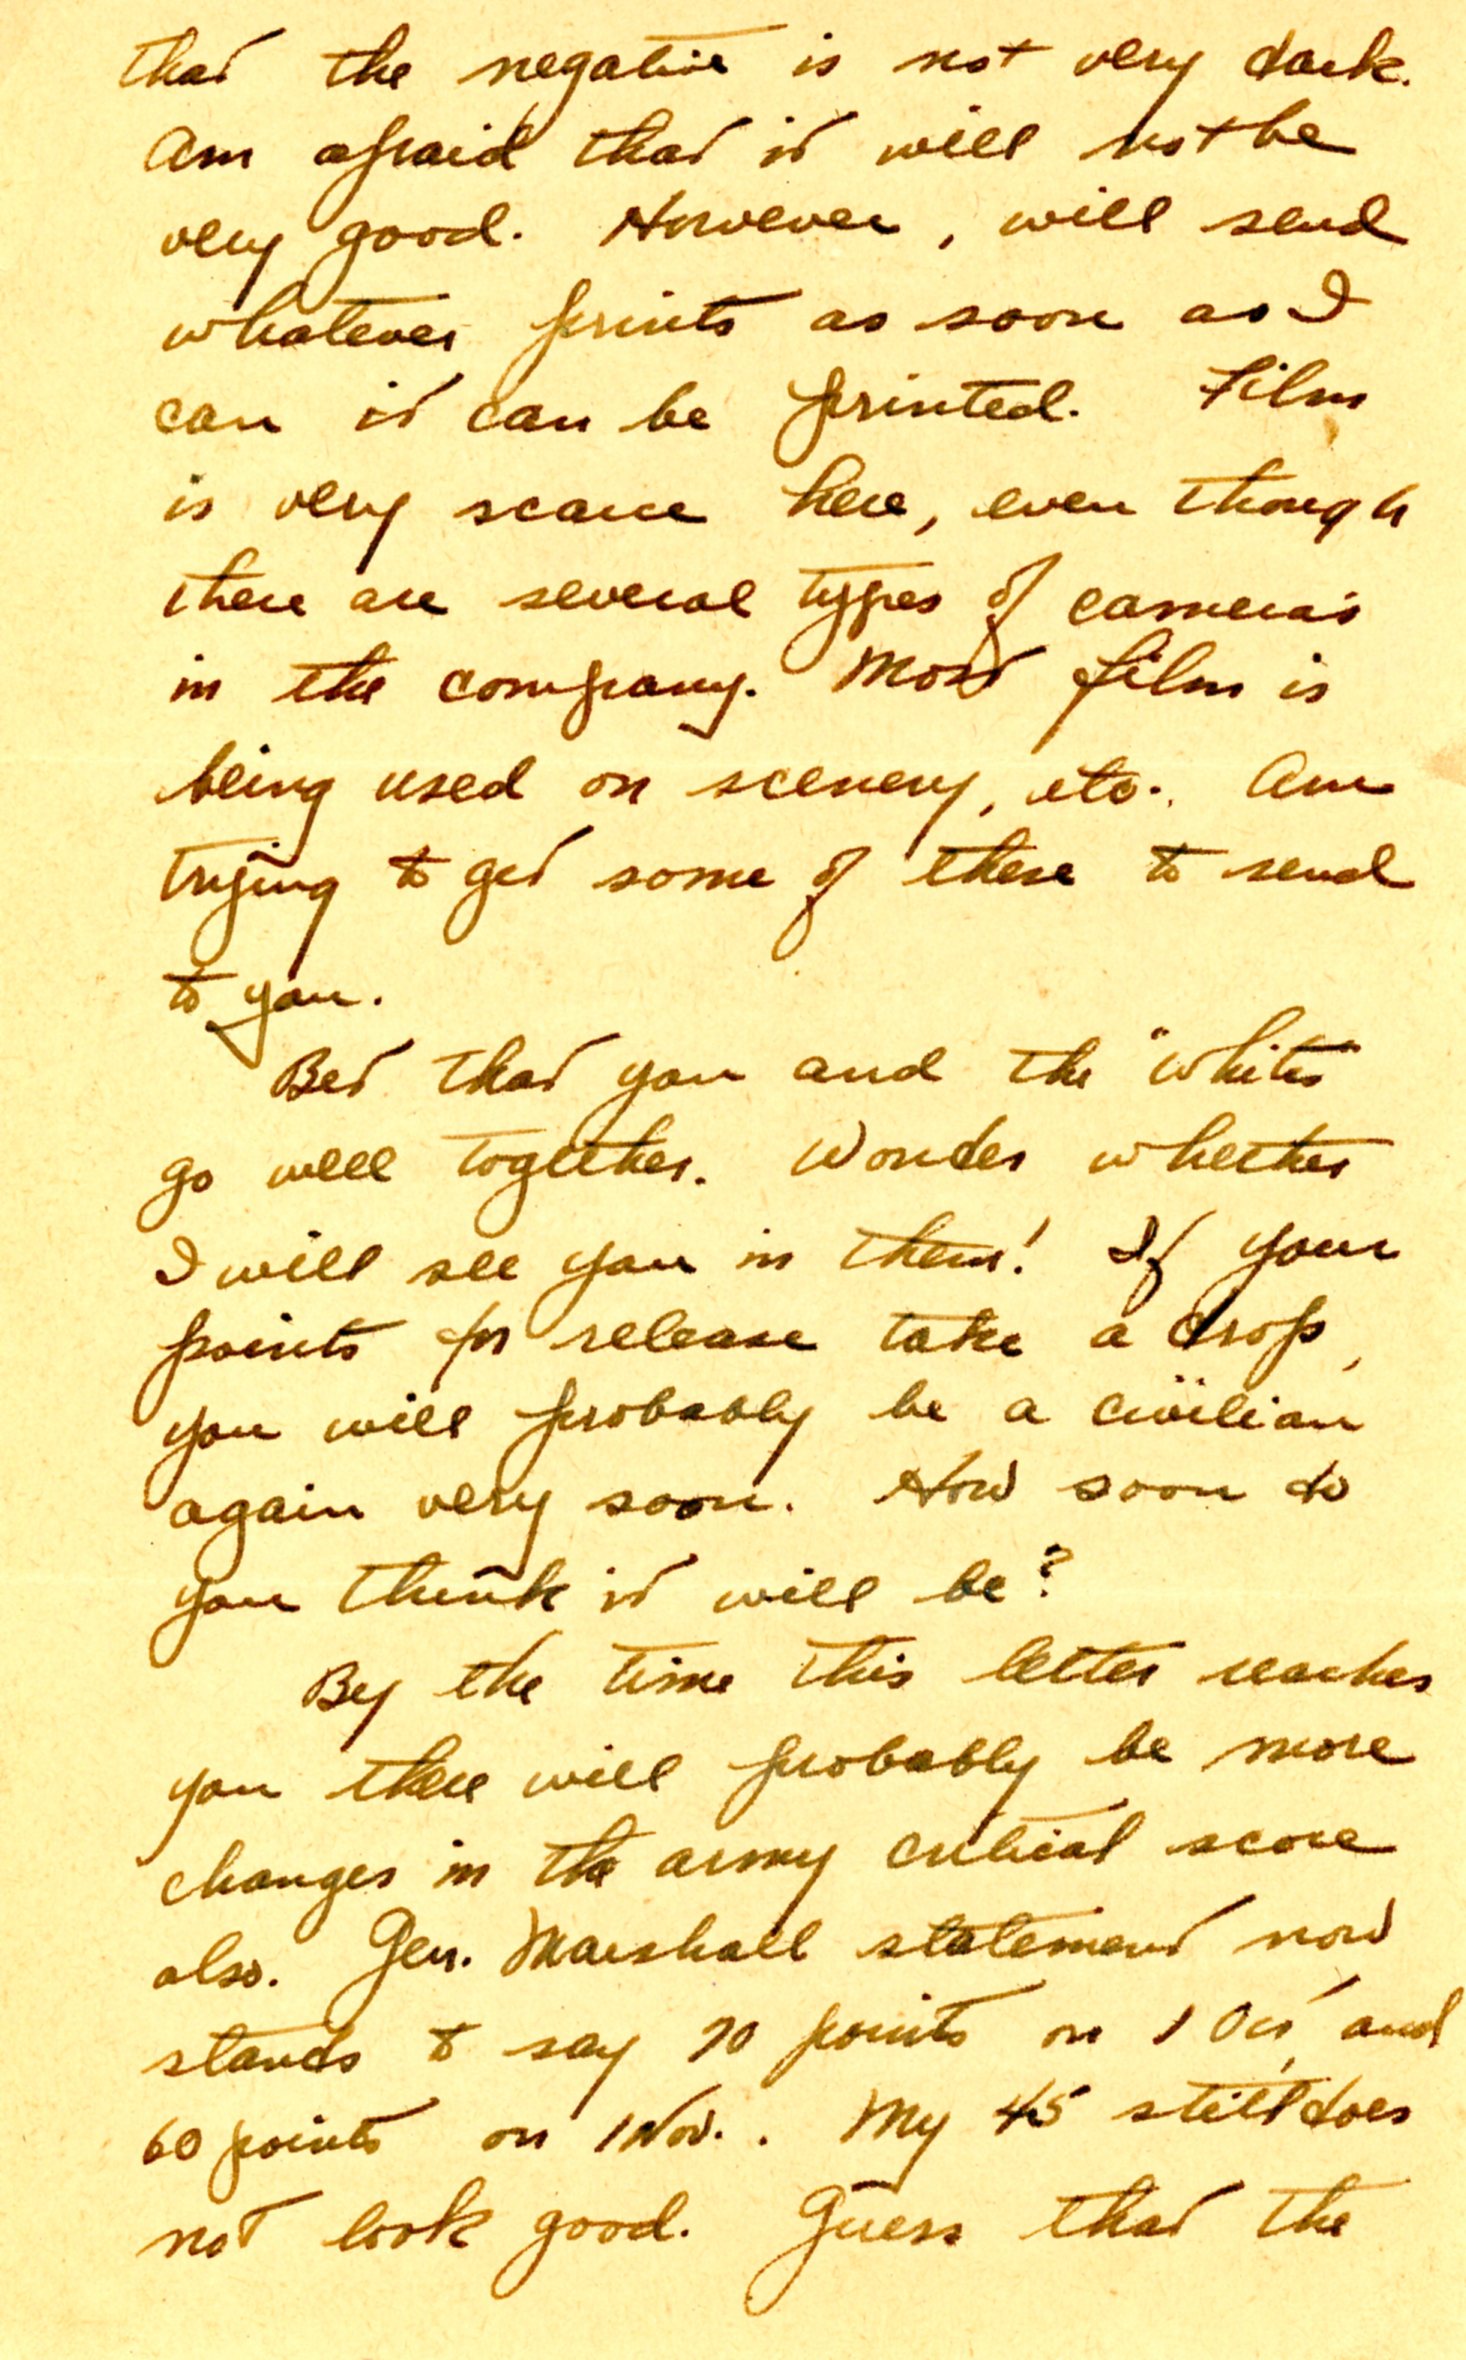 that the negative is not very dark.
Am afraid that it will not be
very good. However, will send
whatever prints as soon as I
can it can be printed. Film
is very scarce here, even though
there are several types of camera's
in the company. Most film is
being used on scenery, etc.. Am
trying to get some of these to send
to you.
Bet that you and the "whites"
go well together. Wonder whether
I will see you in them! If your
points for release take a drop,
you will probably be a civilian
again very soon. How soon do
you think it will be?
By the time this letter reaches
you there will probably be more
changes in the army critical score
also. Gen. Marshall statement now
stands to say 70 points on 1 Oct, and
60 points on 1 Nov.. My 45 still does
not look good. Guess that the